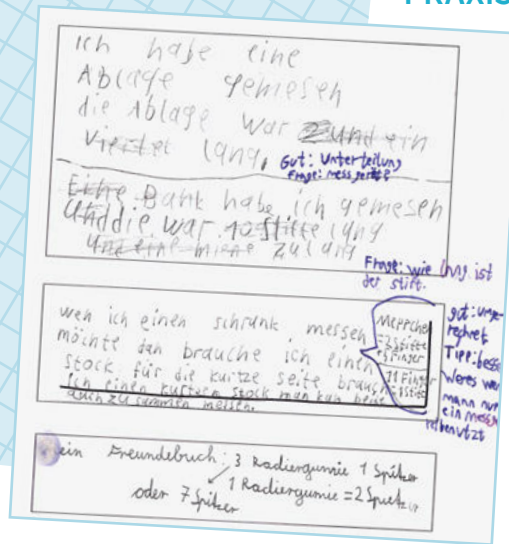 PRAXIS
ich habe eine
Ablage gemesen
die Ablage war 2 und ein
Viertel lang,
Gut: Unterteilung
Frage: messgeräte?
Eine Bank habe ich gemesen
Und die war 10 stifte lang
Und eine miene zu lang
Frage: wie lang ist
der stift.
wen ich einen schrank messen
möchte dan brauche ich einen
stock für die kurtze seite brauche
ich einen kurtsem stock man kan beide
auch zu sammen messen.
Meppchen
=2 Stifte
+3 Finger
11 Finger
=1 Stift
gut: umge-
rechnet
TIPP: besse
weres wen
mann nur
ein messge
rät benutzt
ein Freundebuch: 3 Radiergumie 1 Spitzer
1 Radiergumie = 2 Spitzer
oder 7 Spitzer